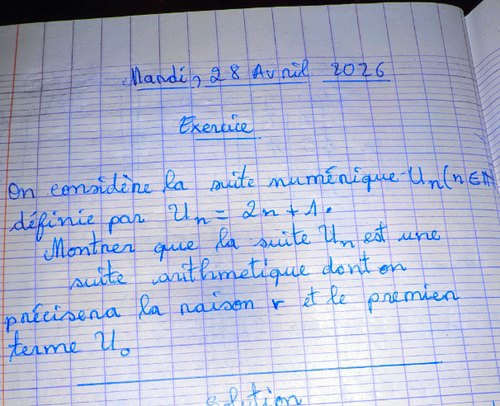 Mardi, 28 Avril 2026
Exercice
On considère la suite numérique Un (n ∈ IN
définie par Un = 2n + 1.
Montrer que la suite Un est une
suite arithmetique dont on
précisera la raison r et le premier
terme U₀
solution